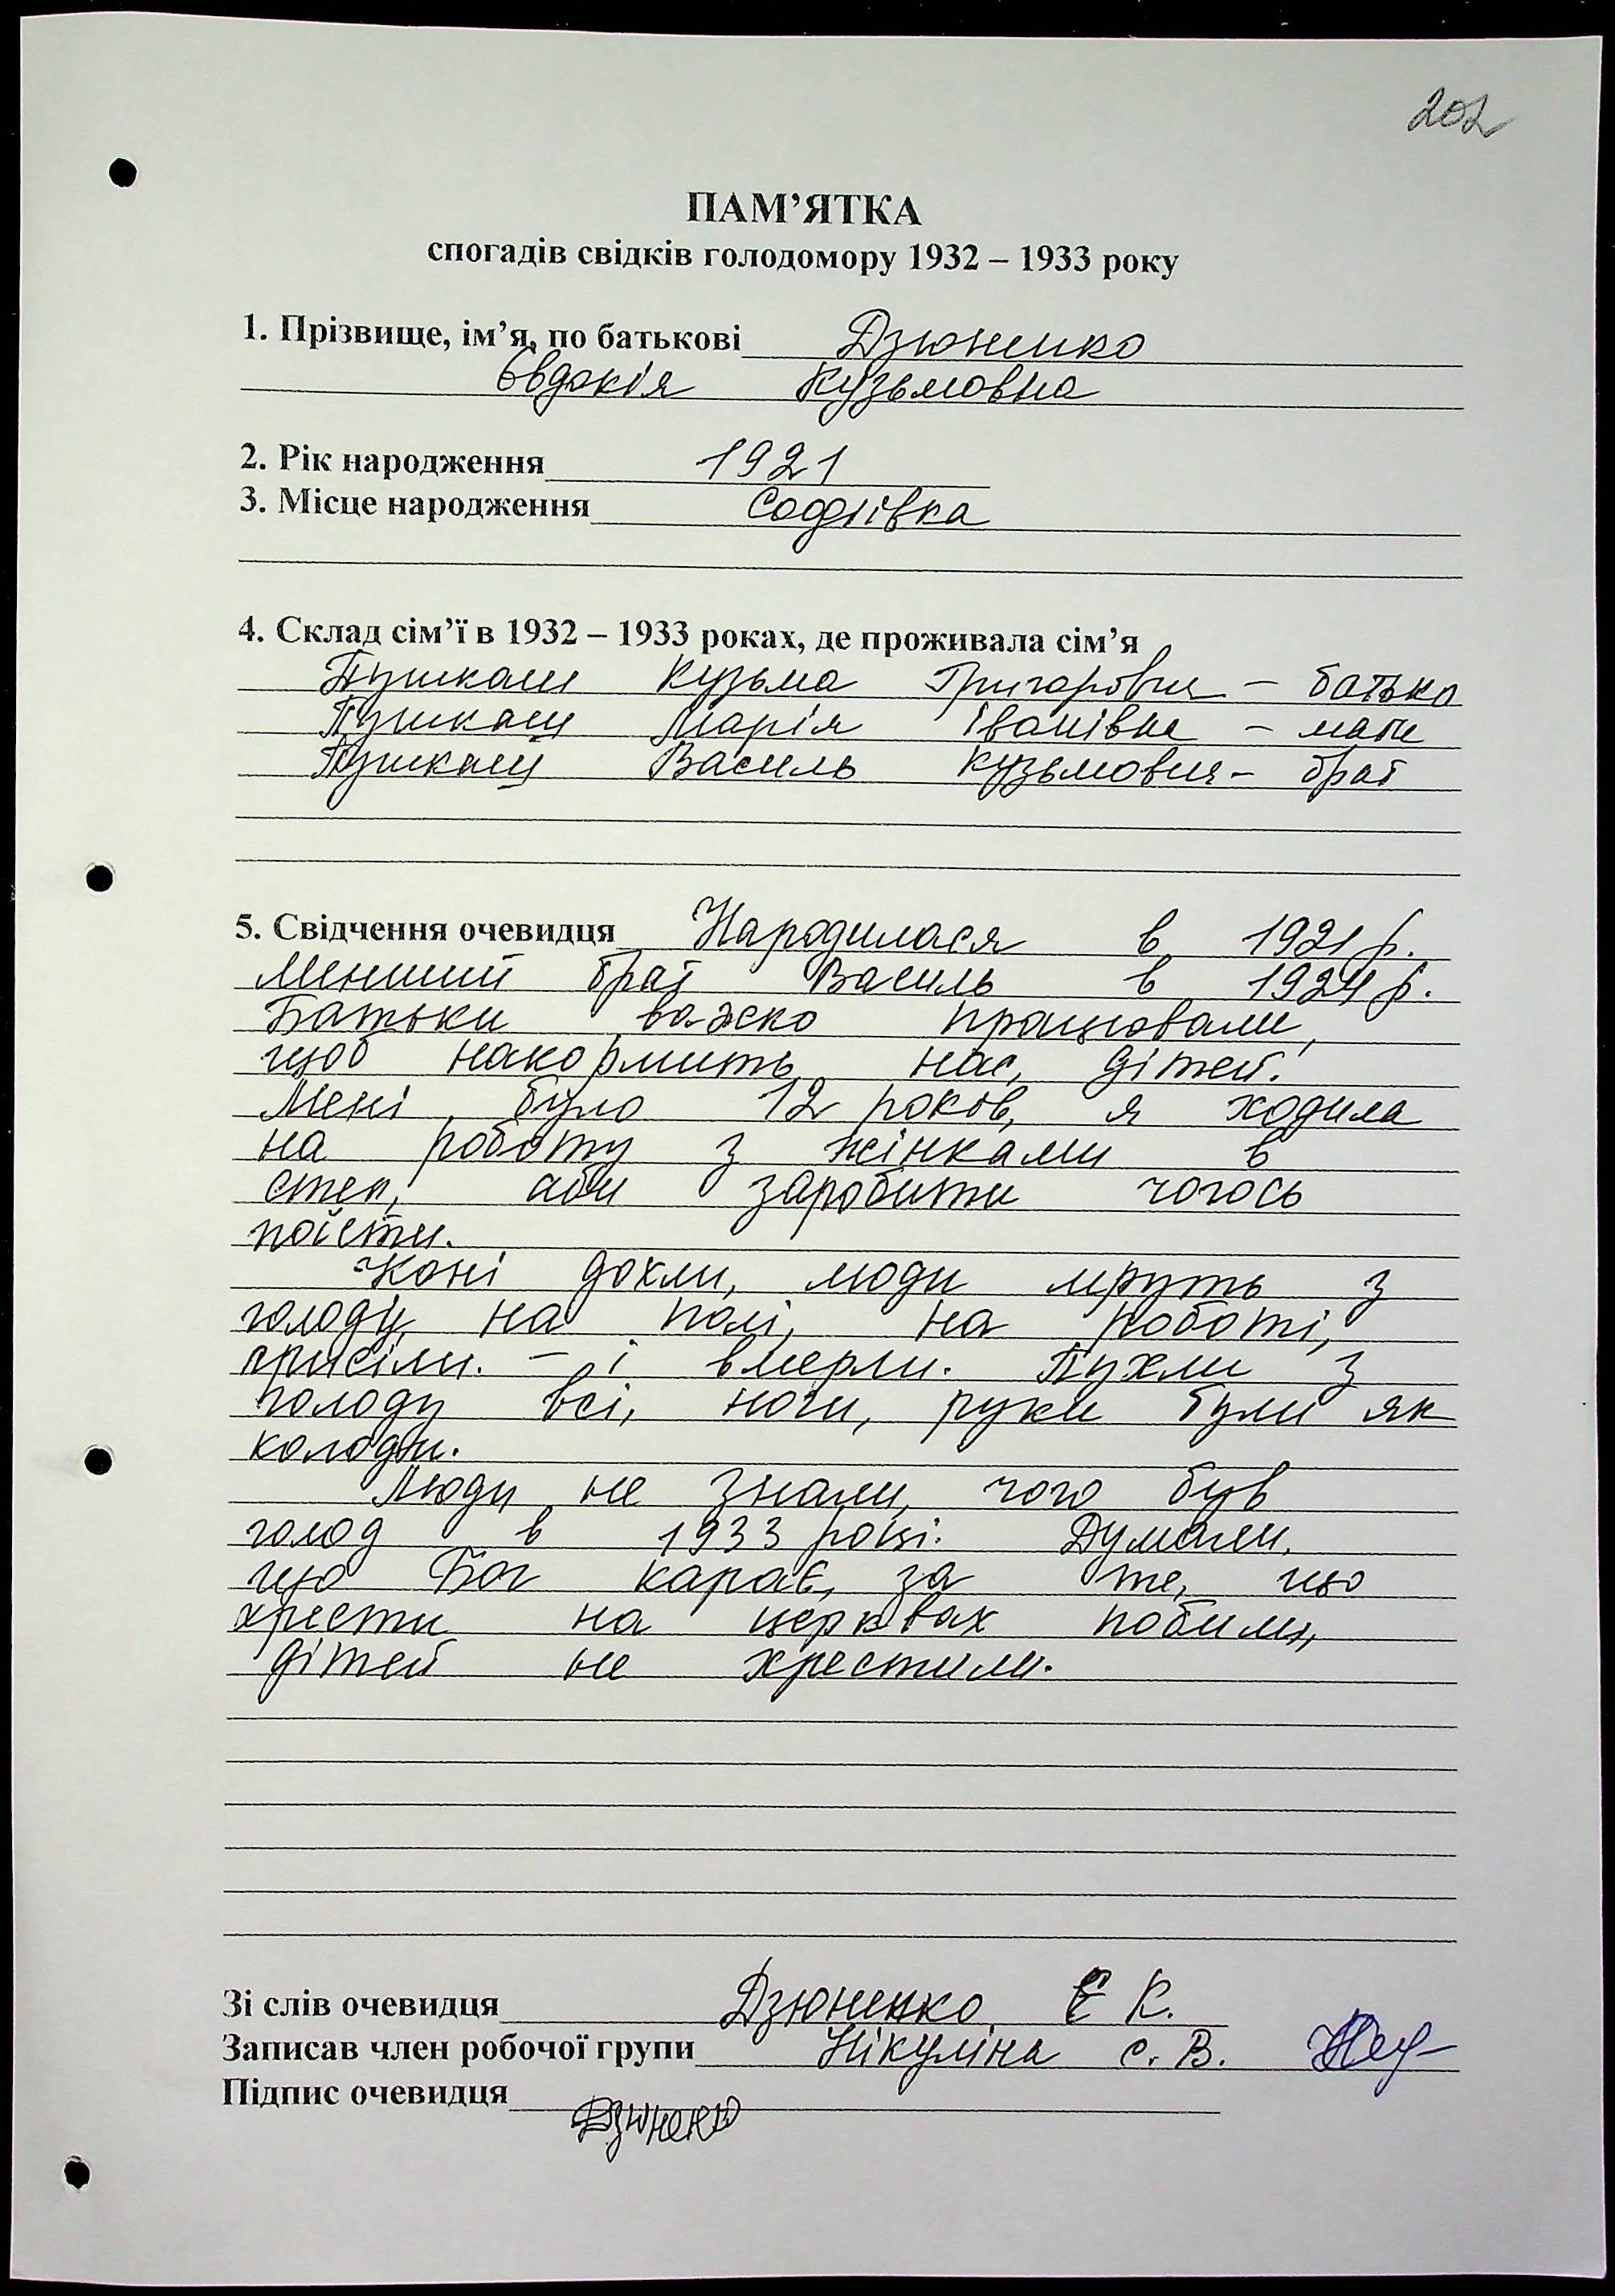 202
ПАМ’ЯТКА
спогадів свідків голодомору 1932 – 1933 року
1. Прізвище, ім’я, по батькові Дзюненко
Євдокія Кузьмовна
2. Рік народження 1921
3. Місце народження Софіївка
4. Склад сім’ї в 1932 – 1933 роках, де проживала сім’я
Пушкаш Кузьма Григорович – батько
Пушкаш Марія Іванівна – мати
Пушкаш Василь Кузьмович – брат
5. Свідчення очевидця Народилася в 1921 р.
Менший брат Василь в 1924 р.
Батьки важко працювали,
щоб накормить нас, дітей.
Мені було 12 років, я ходила
на роботу з жінками в
степ, аби заробити чогось
поїсти.
Коні дохли, люди мруть з
голоду, на полі, на роботі,
присіли. – і вмерли. Пухли з
голоду всі, ноги, руки були як
колоди.
Люди не знали, чого був
голод в 1933 році. Думали,
що Бог карає, за те, що
хрести на церквах побили,
дітей не хрестили.
Зі слів очевидця Дзюненко Є К.
Записав член робочої групи Нікуліна С. В.
Підпис очевидця Дзюненко